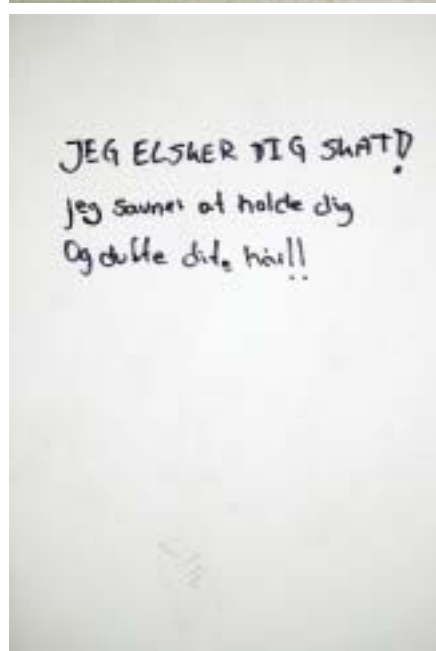 JEG ELSKER DIG SKAT!
jeg savner at holde dig
Og dufte dit hår!!